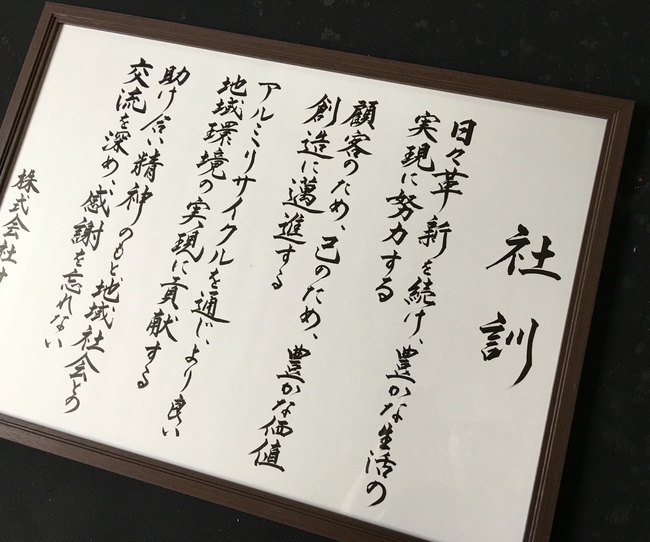 社訓
日々革新を続け、豊かな生活の
実現に努力する
顧客のため、己のため、豊かな価値
創造に邁進する
アルミリサイクルを通じ、より良い
地域環境の実現に貢献する
助け合い精神のもと地域社会との
交流を深め、感謝を忘れない
株式会社